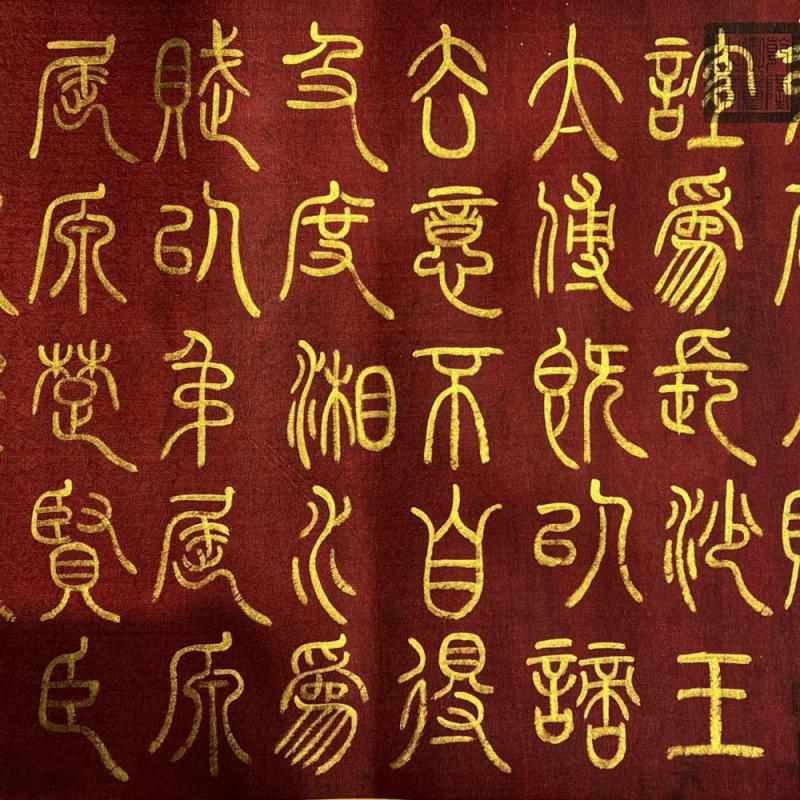 誼爲長沙王
太傅既以謫
去意不自得
及度湘水爲
賦以弔屈原
屈原楚賢臣